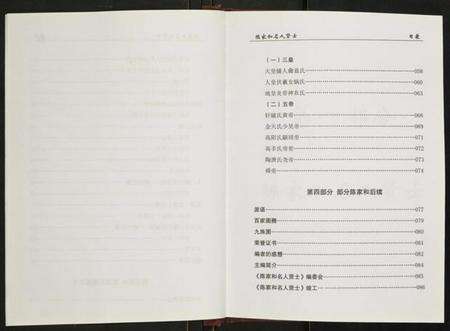 陈家和名人贤士
目录
(一)三皇
天皇燧人 氏……058
人皇伏羲女娲氏……060
地皇炎帝神农氏……063
(二)五帝
轩辕氏黄帝……066
金天氏少昊帝……069
高阳氏颛顼帝……071
高辛氏帝喾……072
陶唐氏尧帝……073
舜帝……074
第四部分 部分陈家和后续
派语……077
百家图腾……079
九族图……080
荣誉证书……081
编者的感想……082
主编简介……084
《陈家和名人贤士》编委会……085
《陈家和名人贤士》竣工……086